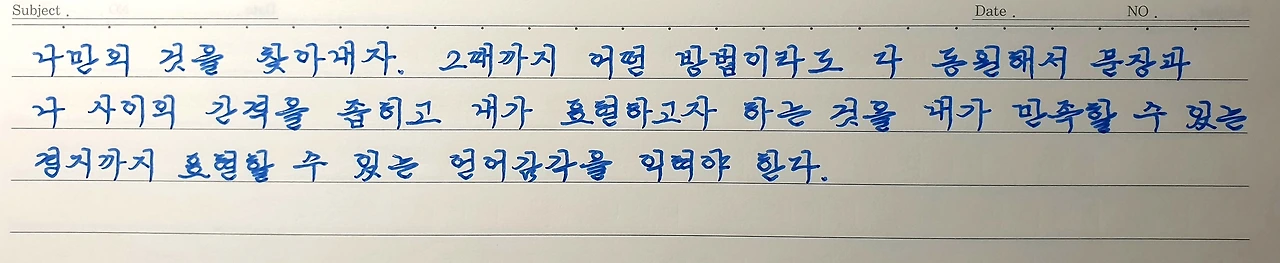 Subject . Date . NO .
나만의 것을 찾아내자. 그때까지 어떤 방법이라도 다 동원해서 문장과
나 사이의 간격을 좁히고 내가 표현하고자 하는 것을 내가 만족할 수 있는
경지까지 표현할 수 있는 언어감각을 익혀야 한다.